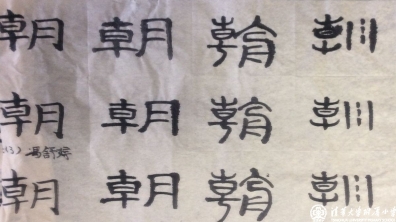 朝朝朝朝
朝朝朝朝
冯舒婷
朝朝朝朝